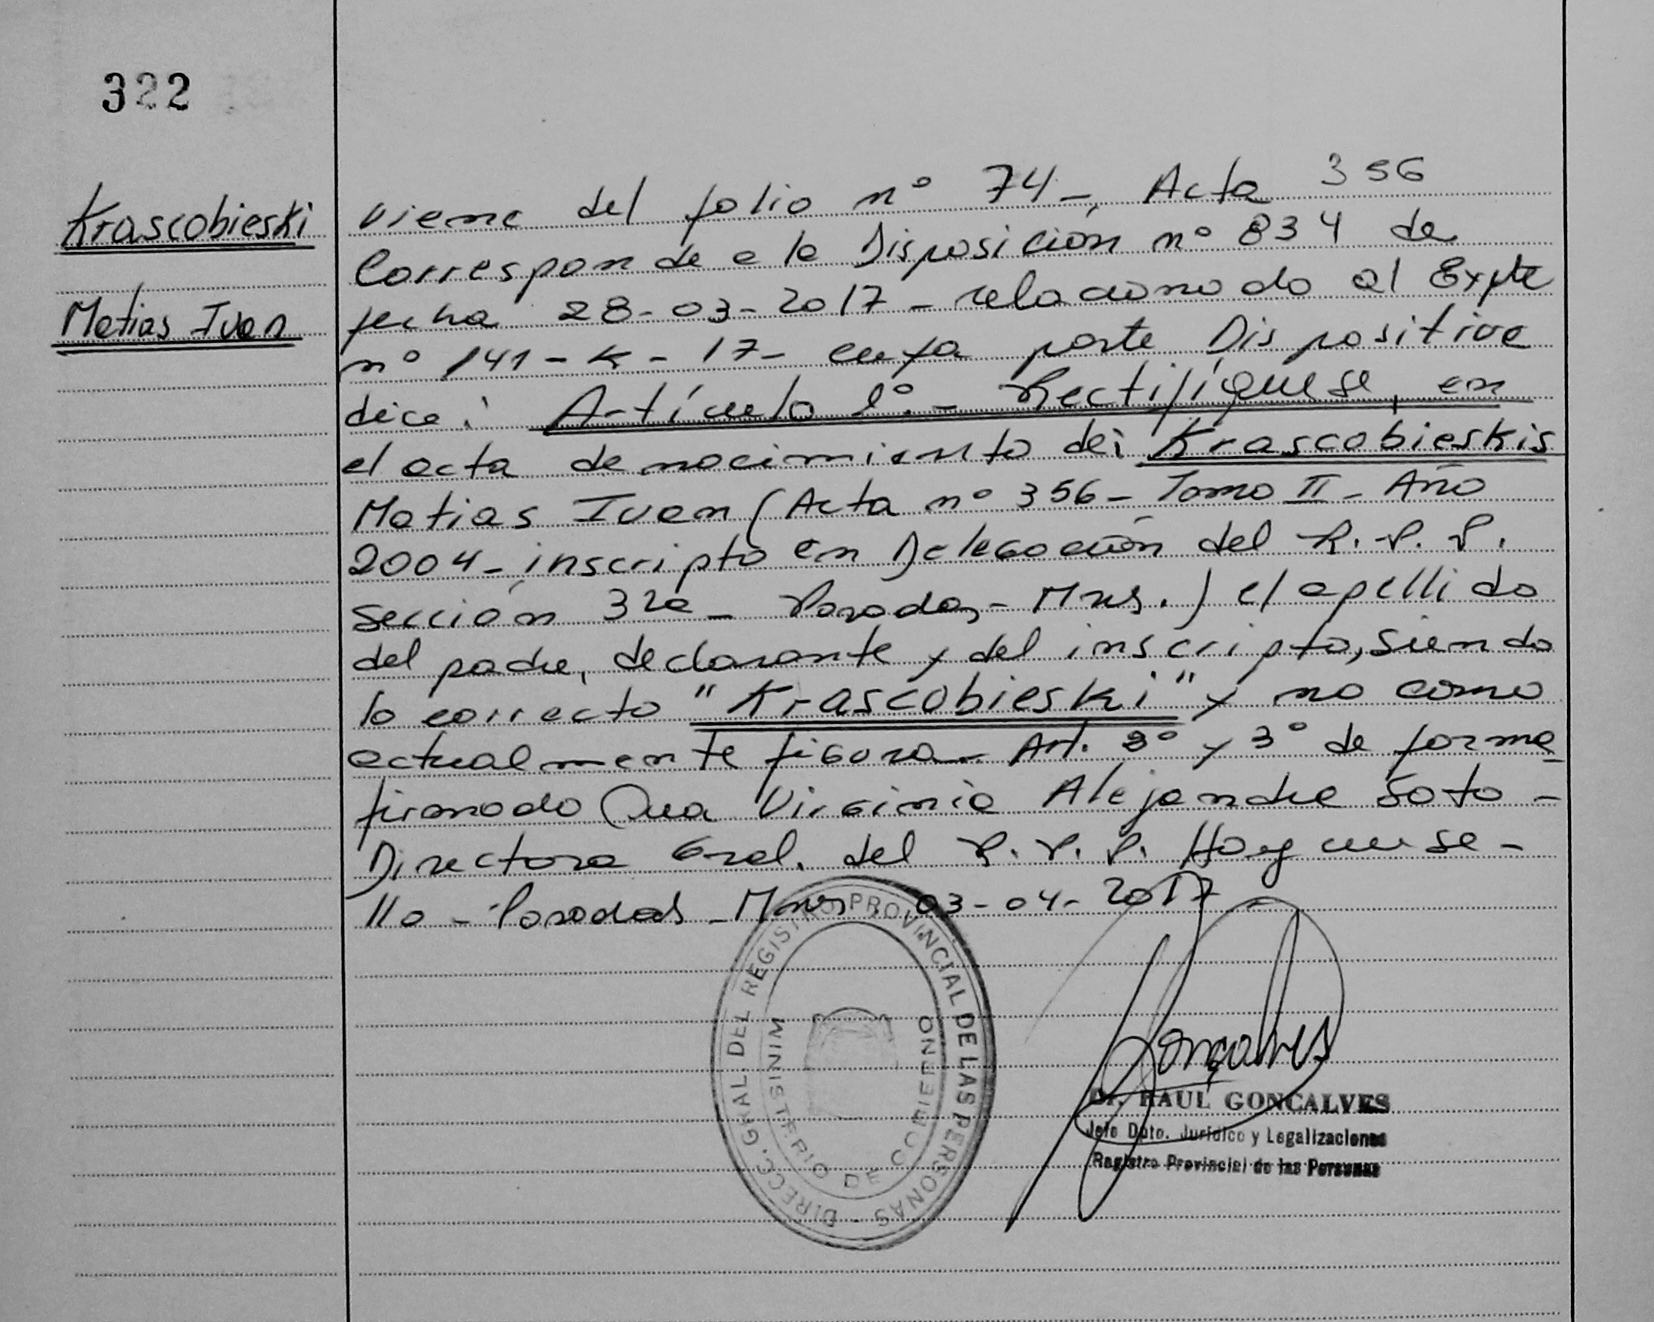 322
Krascobieski
Matias Ivan
Viene del folio nº 74-, Acta 356
Corresponde a la Disposición nº 834 de
fecha 28-03-2017- relacionado al Expte
nº 141-K-17- cuya parte Dispositiva
dice: Artículo 1º.- Rectifíquese, en
el acta de nacimiento de: Krascobieskis
Matias Ivan (Acta nº 356- Tomo II- Año
2004- inscripto en Delegación del R.P.P.
Sección 32a- Posadas- Mnes.) el apellido
del padre, declarante y del inscripto, siendo
lo correcto "Krascobieski" y no como
actualmente figura- Art. 2º y 3º de forma-
firmado Dra Virginia Alejandra Soto-
Directora Gral. del R.P.P. Hay un se-
llo- Posadas- Mnes 03-04-2017
DIRECC. GRAL. DEL REGISTRO PROVINCIAL DE LAS PERSONAS
MINISTERIO DE GOBIERNO
Gonçalves
Dr. RAUL GONCALVES
Jefe Dpto. Jurídico y Legalizaciones
Registro Provincial de las Personas